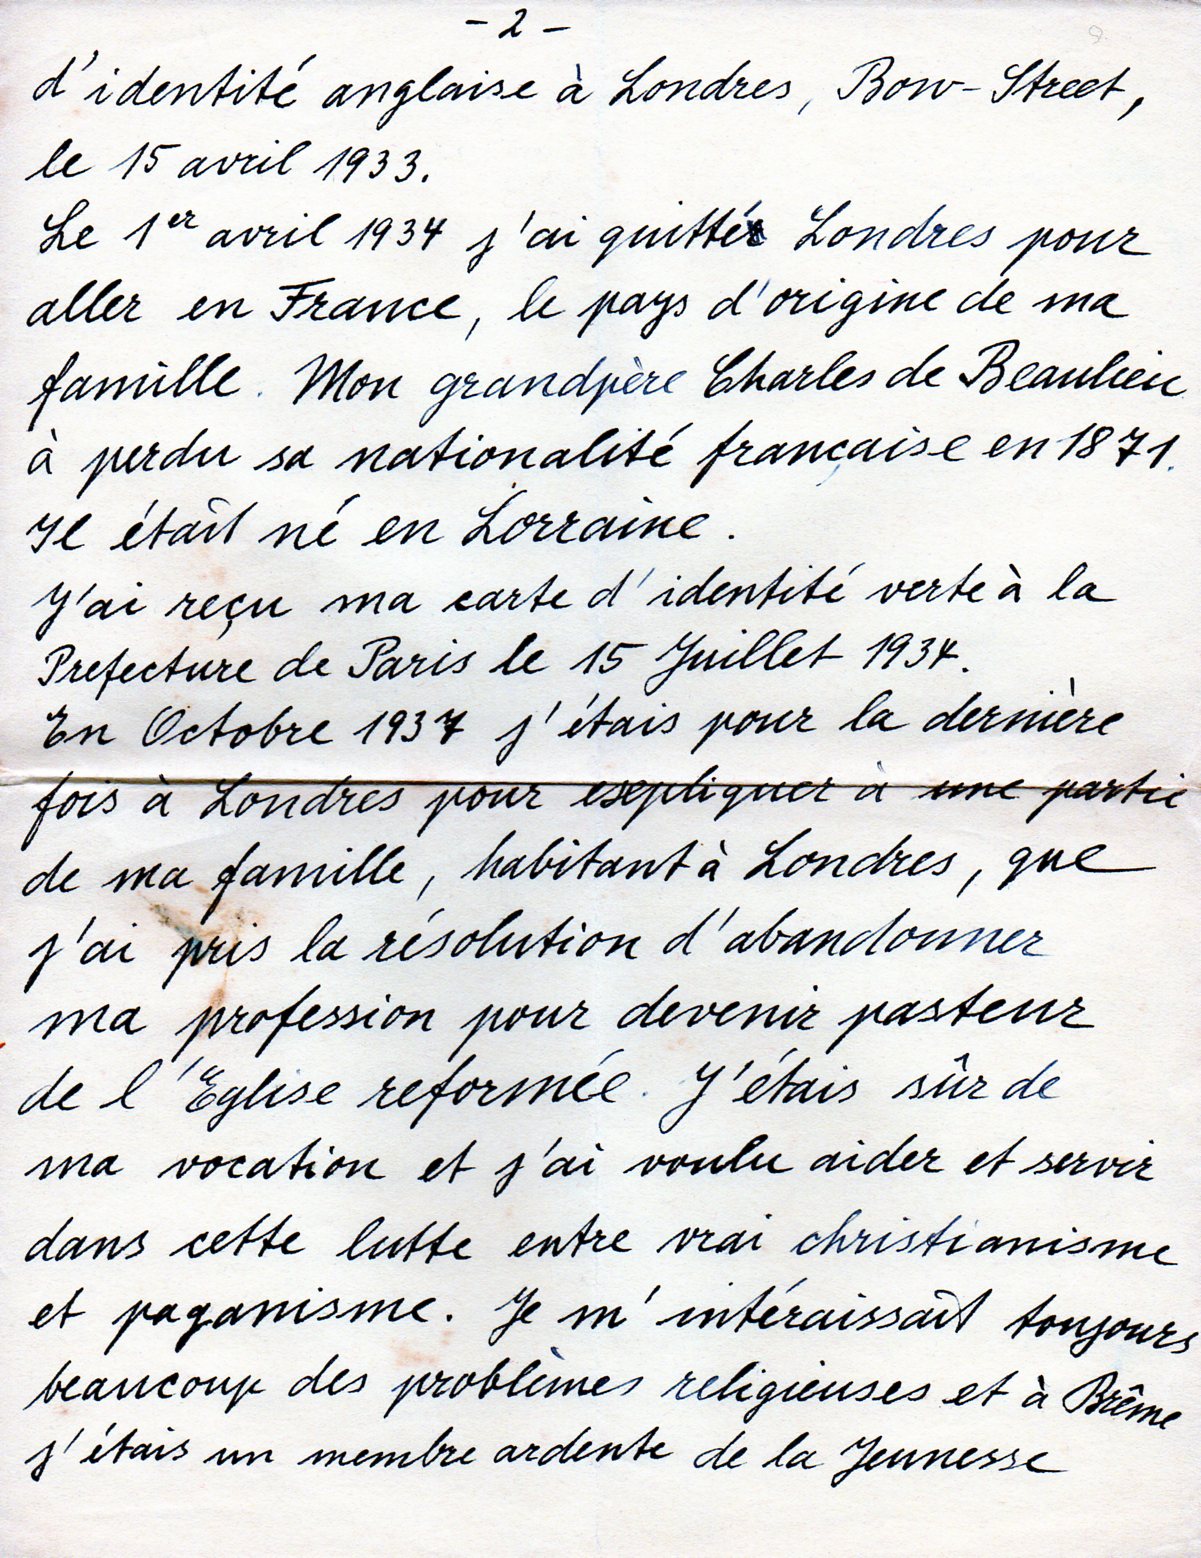 - 2 -
d'identité anglaise à Londres, Bow-Street,
le 15 avril 1933.
Le 1er avril 1934 j'ai quitté Londres pour
aller en France, le pays d'origine de ma
famille. Mon grandpère Charles de Beaulieu
à perdu sa nationalité française en 1871.
Il étaît né en Lorraine.
J'ai reçu ma carte d'identité verte à la
Prefecture de Paris le 15 Juillet 1934.
En Octobre 1937 j'étais pour la dernière
fois à Londres pour esepliquer à une partie
de ma famille, habitant à Londres, que
j'ai pris la résolution d'abandonner
ma profession pour devenir pasteur
de l'Eglise reformée. J'étais sûr de
ma vocation et j'ai voulu aider et servir
dans cette lutte entre vrai christianisme
et paganisme. Je m'intéraissaît toujours
beaucoup des problèmes religieuses et à Brême
j'étais un membre ardente de la Jeunesse